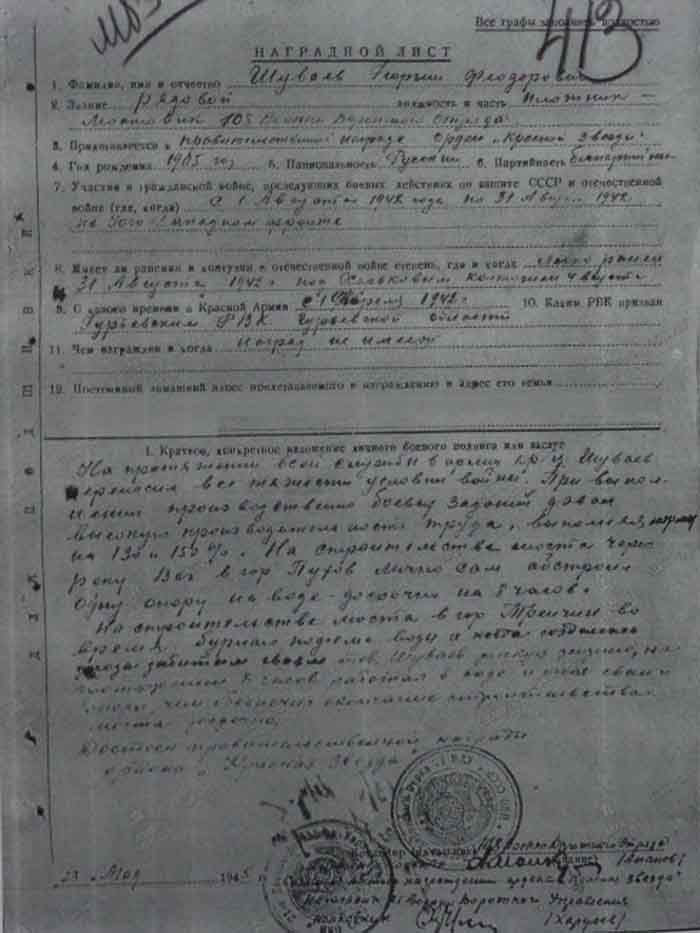 Все графы заполнять полностью
413
НАГРАДНОЙ ЛИСТ
1. Фамилия, имя и отчество Шуваев Георгий Феодорович
2. Звание рядовой должность и часть плотник-
мостовик 105 Военно Дорожного отряда
3. Представляется к правительственной награде орден „Красная Звезда“
4. Год рождения 1905 год 5. Национальность Русский 6. Партийность беспартийный
7. Участие в гражданской войне, последующих боевых действиях по защите СССР и отечественной
войне (где, когда) с 1 Августа 1942 года по 31 Август 1942
на Юго-Западном фронте
8. Имеет ли ранения и контузии в отечественной войне легко ранен
31 Августа 1942 г под
9. С какого времени в Красной Армии с 1 Апреля 1942 г 10. Каким РВК призван
Гурьевским РВК Гурьевской области
11. Чем награжден и когда наград не имеет
12. Постоянный домашний адрес представляемого к награждению и адрес его семьи
I. Краткое, конкретное изложение личного боевого подвига или заслуг
На протяжении всей службы в армии кр-ц Шуваев
переносил все тяжести условий войны. При выпол-
нении производственно боевых заданий давал
высокую производительность труда, выполняя норму
на 130 и 150%. На строительстве моста через
реку Ваг в гор Пухов лично сам построил
одну опору на воде досрочно на 8 часов.
На строительстве моста в гор Тренчин во
время бурного подъема воды и когда создалась
угроза забитым сваям тов. Шуваев
8 часов работал в воде и спас сваи
чем обеспечил окончание строительства
моста досрочно.
Достоин правительственной награды
ордена „Красная Звезда“
105 Военно Дорожного Отряда
23 Мая 1945 г
достоин награждения ордена „Красная Звезда“
Военно Дорожного Управления
полковник